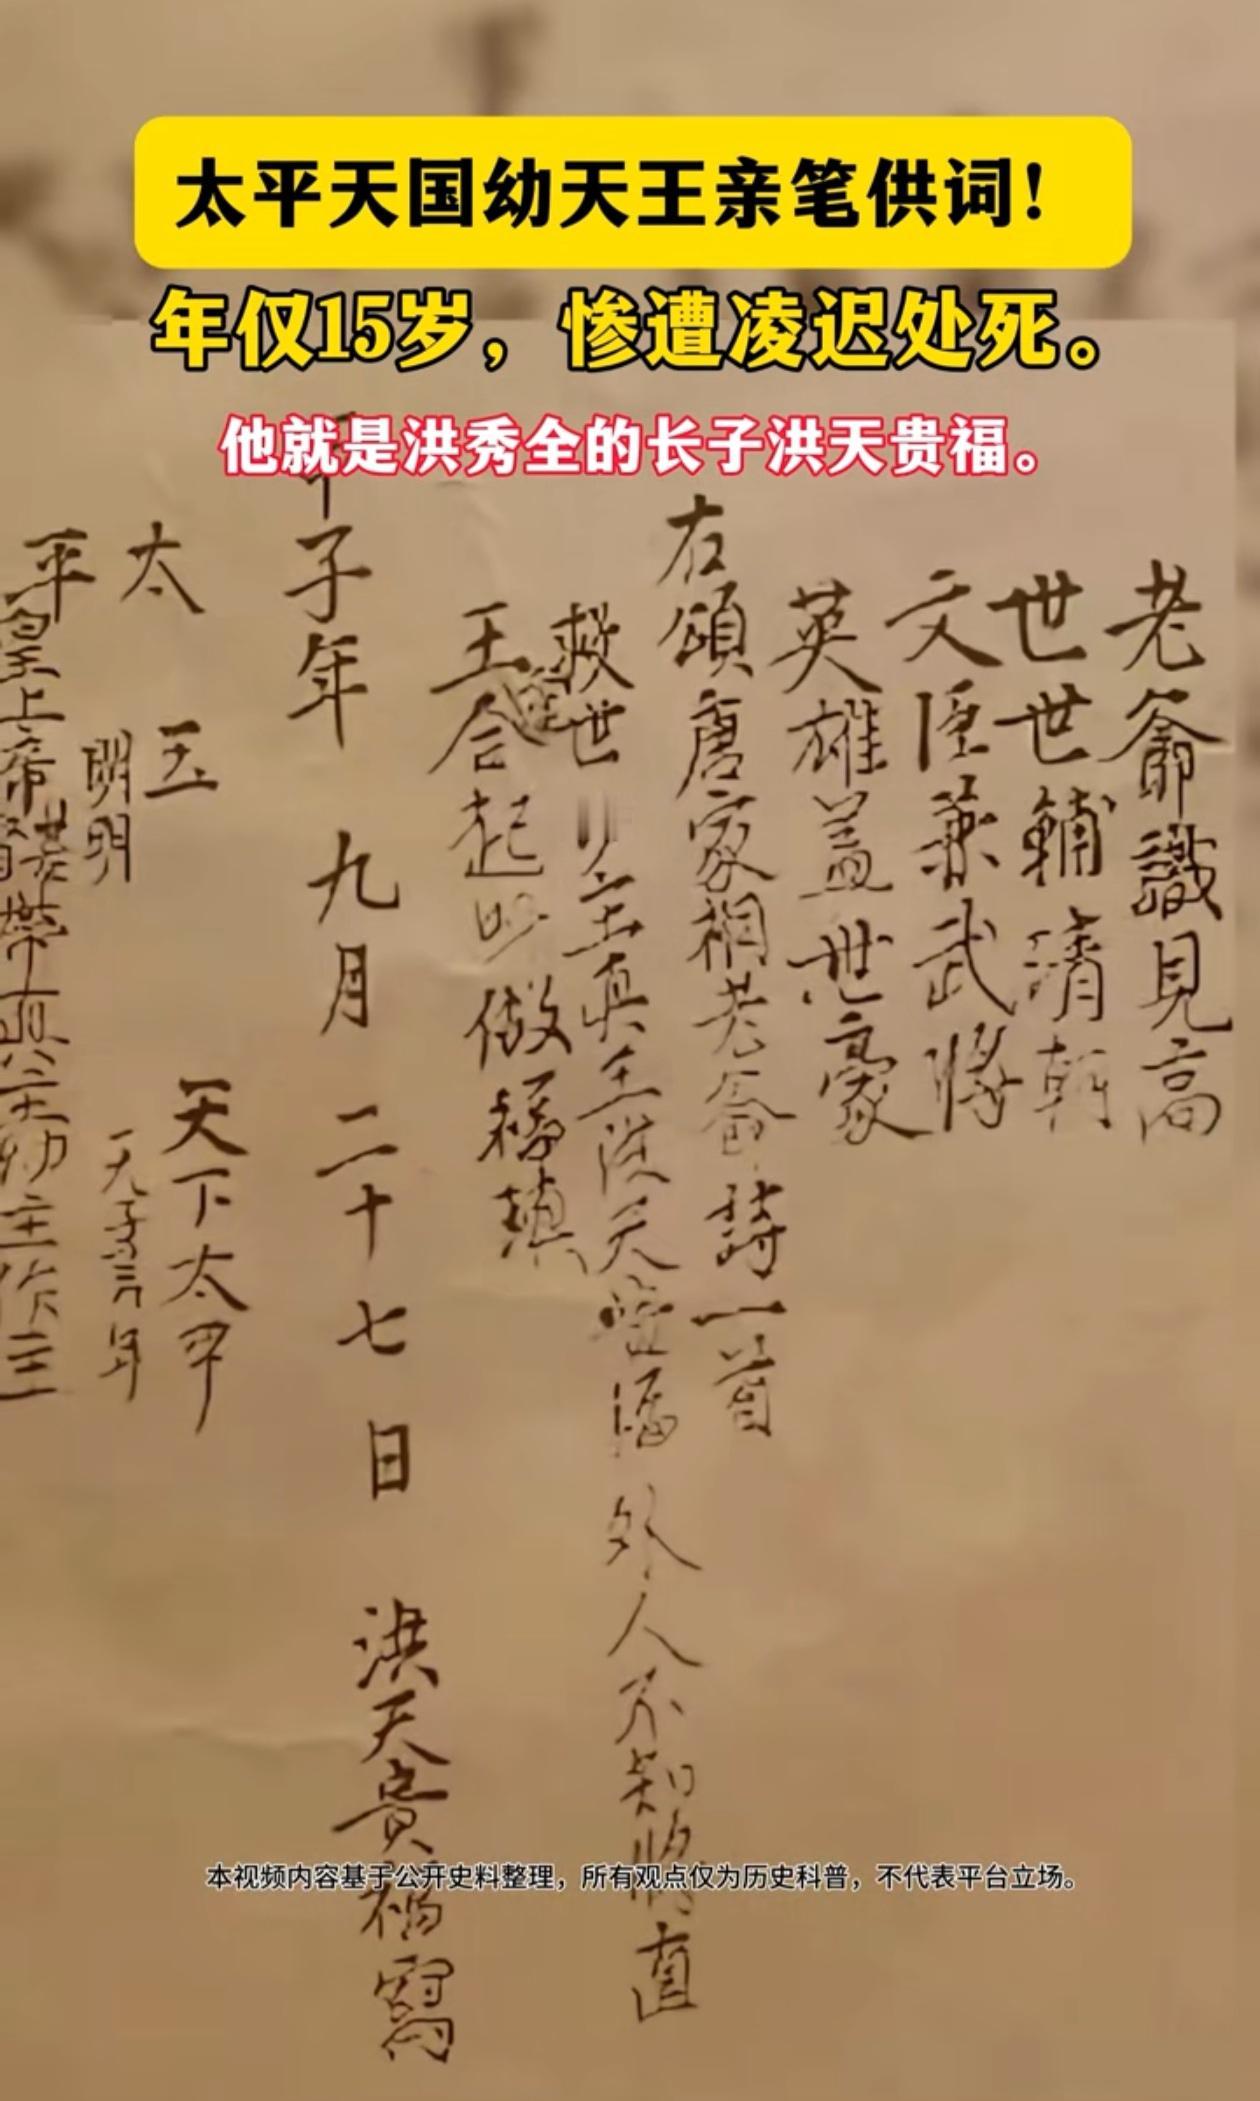 太平天国幼天王亲笔供词！
年仅15岁，惨遭凌迟处死。
他就是洪秀全的长子洪天贵福。
老爺識見高
世世輔清朝
文臣兼武將
英雄蓋世豪
右頌唐家桐老爺詩一首
救世 主真主洪天 福外人不知將 直
王合起 做
子年九月二十七日洪天貴福寫
玉
天下太平
太
明明
天子 年
平
皇上帝基 真 主幼主作主
本视频内容基于公开史料整理，所有观点仅为历史科普，不代表平台立场。